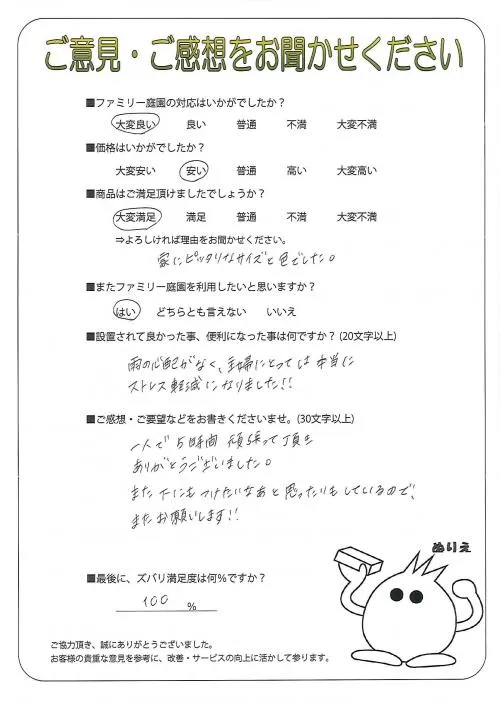 ご意見・ご感想をお聞かせください
■ファミリー庭園の対応はいかがでしたか？
大変良い 良い 普通 不満 大変不満
■価格はいかがでしたか？
大変安い 安い 普通 高い 大変高い
■商品はご満足頂けましたでしょうか？
大変満足 満足 普通 不満 大変不満
⇒よろしければ理由をお聞かせください。
家にピッタリなサイズと色でした。
■またファミリー庭園を利用したいと思いますか？
はい どちらとも言えない いいえ
■設置されて良かった事、便利になった事は何ですか？(20文字以上)
雨の心配がなく、主婦にとっては本当に
ストレス軽減になりました!!
■ご感想・ご要望などをお書きくださいませ。(30文字以上)
一人で5時間 頑張って頂き
ありがとうございました。
また下にもつけたいなぁと思ったりもしているので、
またお願いします!!
ぬりえ
■最後に、ズバリ満足度は何％ですか？
100 ％
ご協力頂き、誠にありがとうございました。
お客様の貴重な意見を参考に、改善・サービスの向上に活かして参ります。